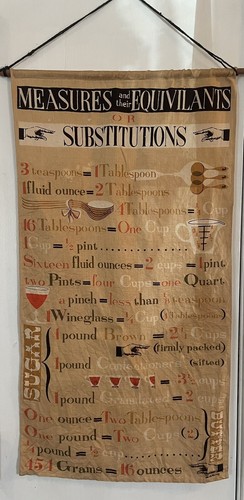 MEASURES and their EQUIVILANTS
OR
SUBSTITUTIONS
3 teaspoons = 1 Tablespoon
1 fluid ounce = 2 Tablespoons
4 Tablespoons = Cup
16 Tablespoons = One Cup
1 Cup = ½ pint
Sixteen fluid ounces = 2 cups = 1 pint
two Pints = four Cups = one Quart
a pinch = less than teaspoon
1 Wineglass = Cup (Tablespoons)
SUGAR
1 pound Brown (firmly packed)
1 pound Confectioners (sifted)
= 3½ cups
1 pound Granulated = 2 cups
BUTTER
One ounce = Two Tablespoons
One pound = Two Cup (2)
pound = ½ cup
454 Grams = 16 ounces